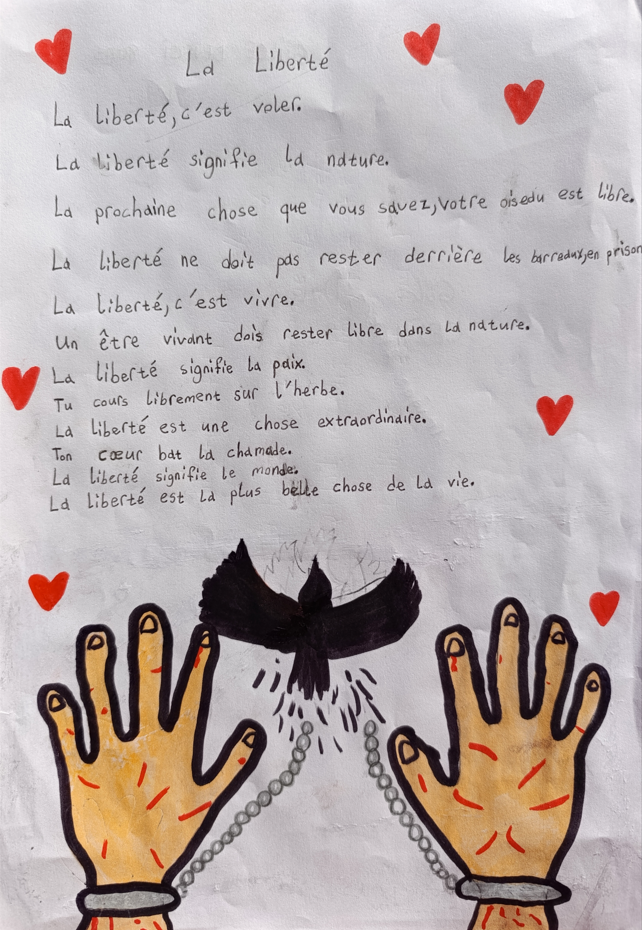 La Liberté
La liberté, c'est voler.
La liberté signifie la nature.
La prochaine chose que vous savez, votre oiseau est libre.
La liberté ne doit pas rester derrière les barreaux, en prison
La liberté, c'est vivre.
Un être vivant dois rester libre dans la nature.
La liberté signifie la paix.
Tu cours librement sur l'herbe.
La liberté est une chose extraordinaire.
Ton cœur bat la chamade.
La liberté signifie le monde.
La liberté est la plus belle chose de la vie.